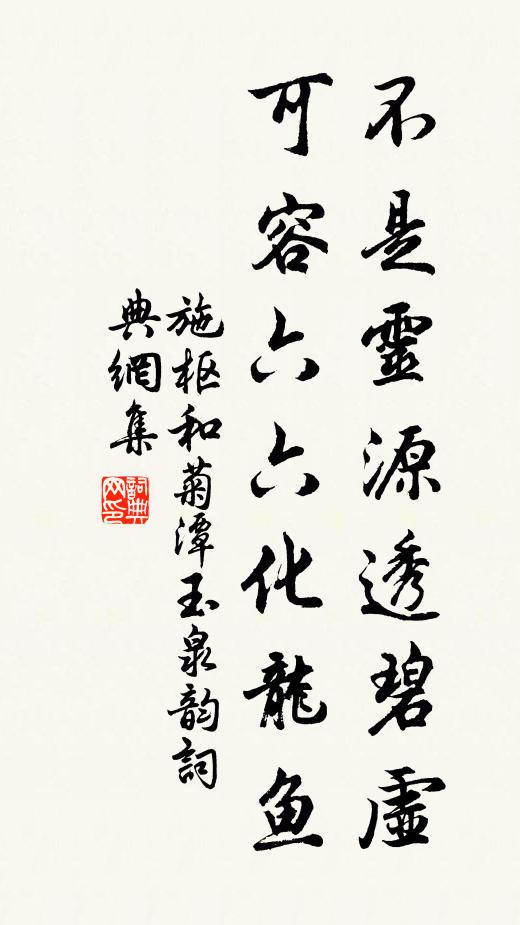 不是靈源透碧虛
可容六六化龍鱼
施枢和菊潭玉泉韵詞
典網集
詞典
网印